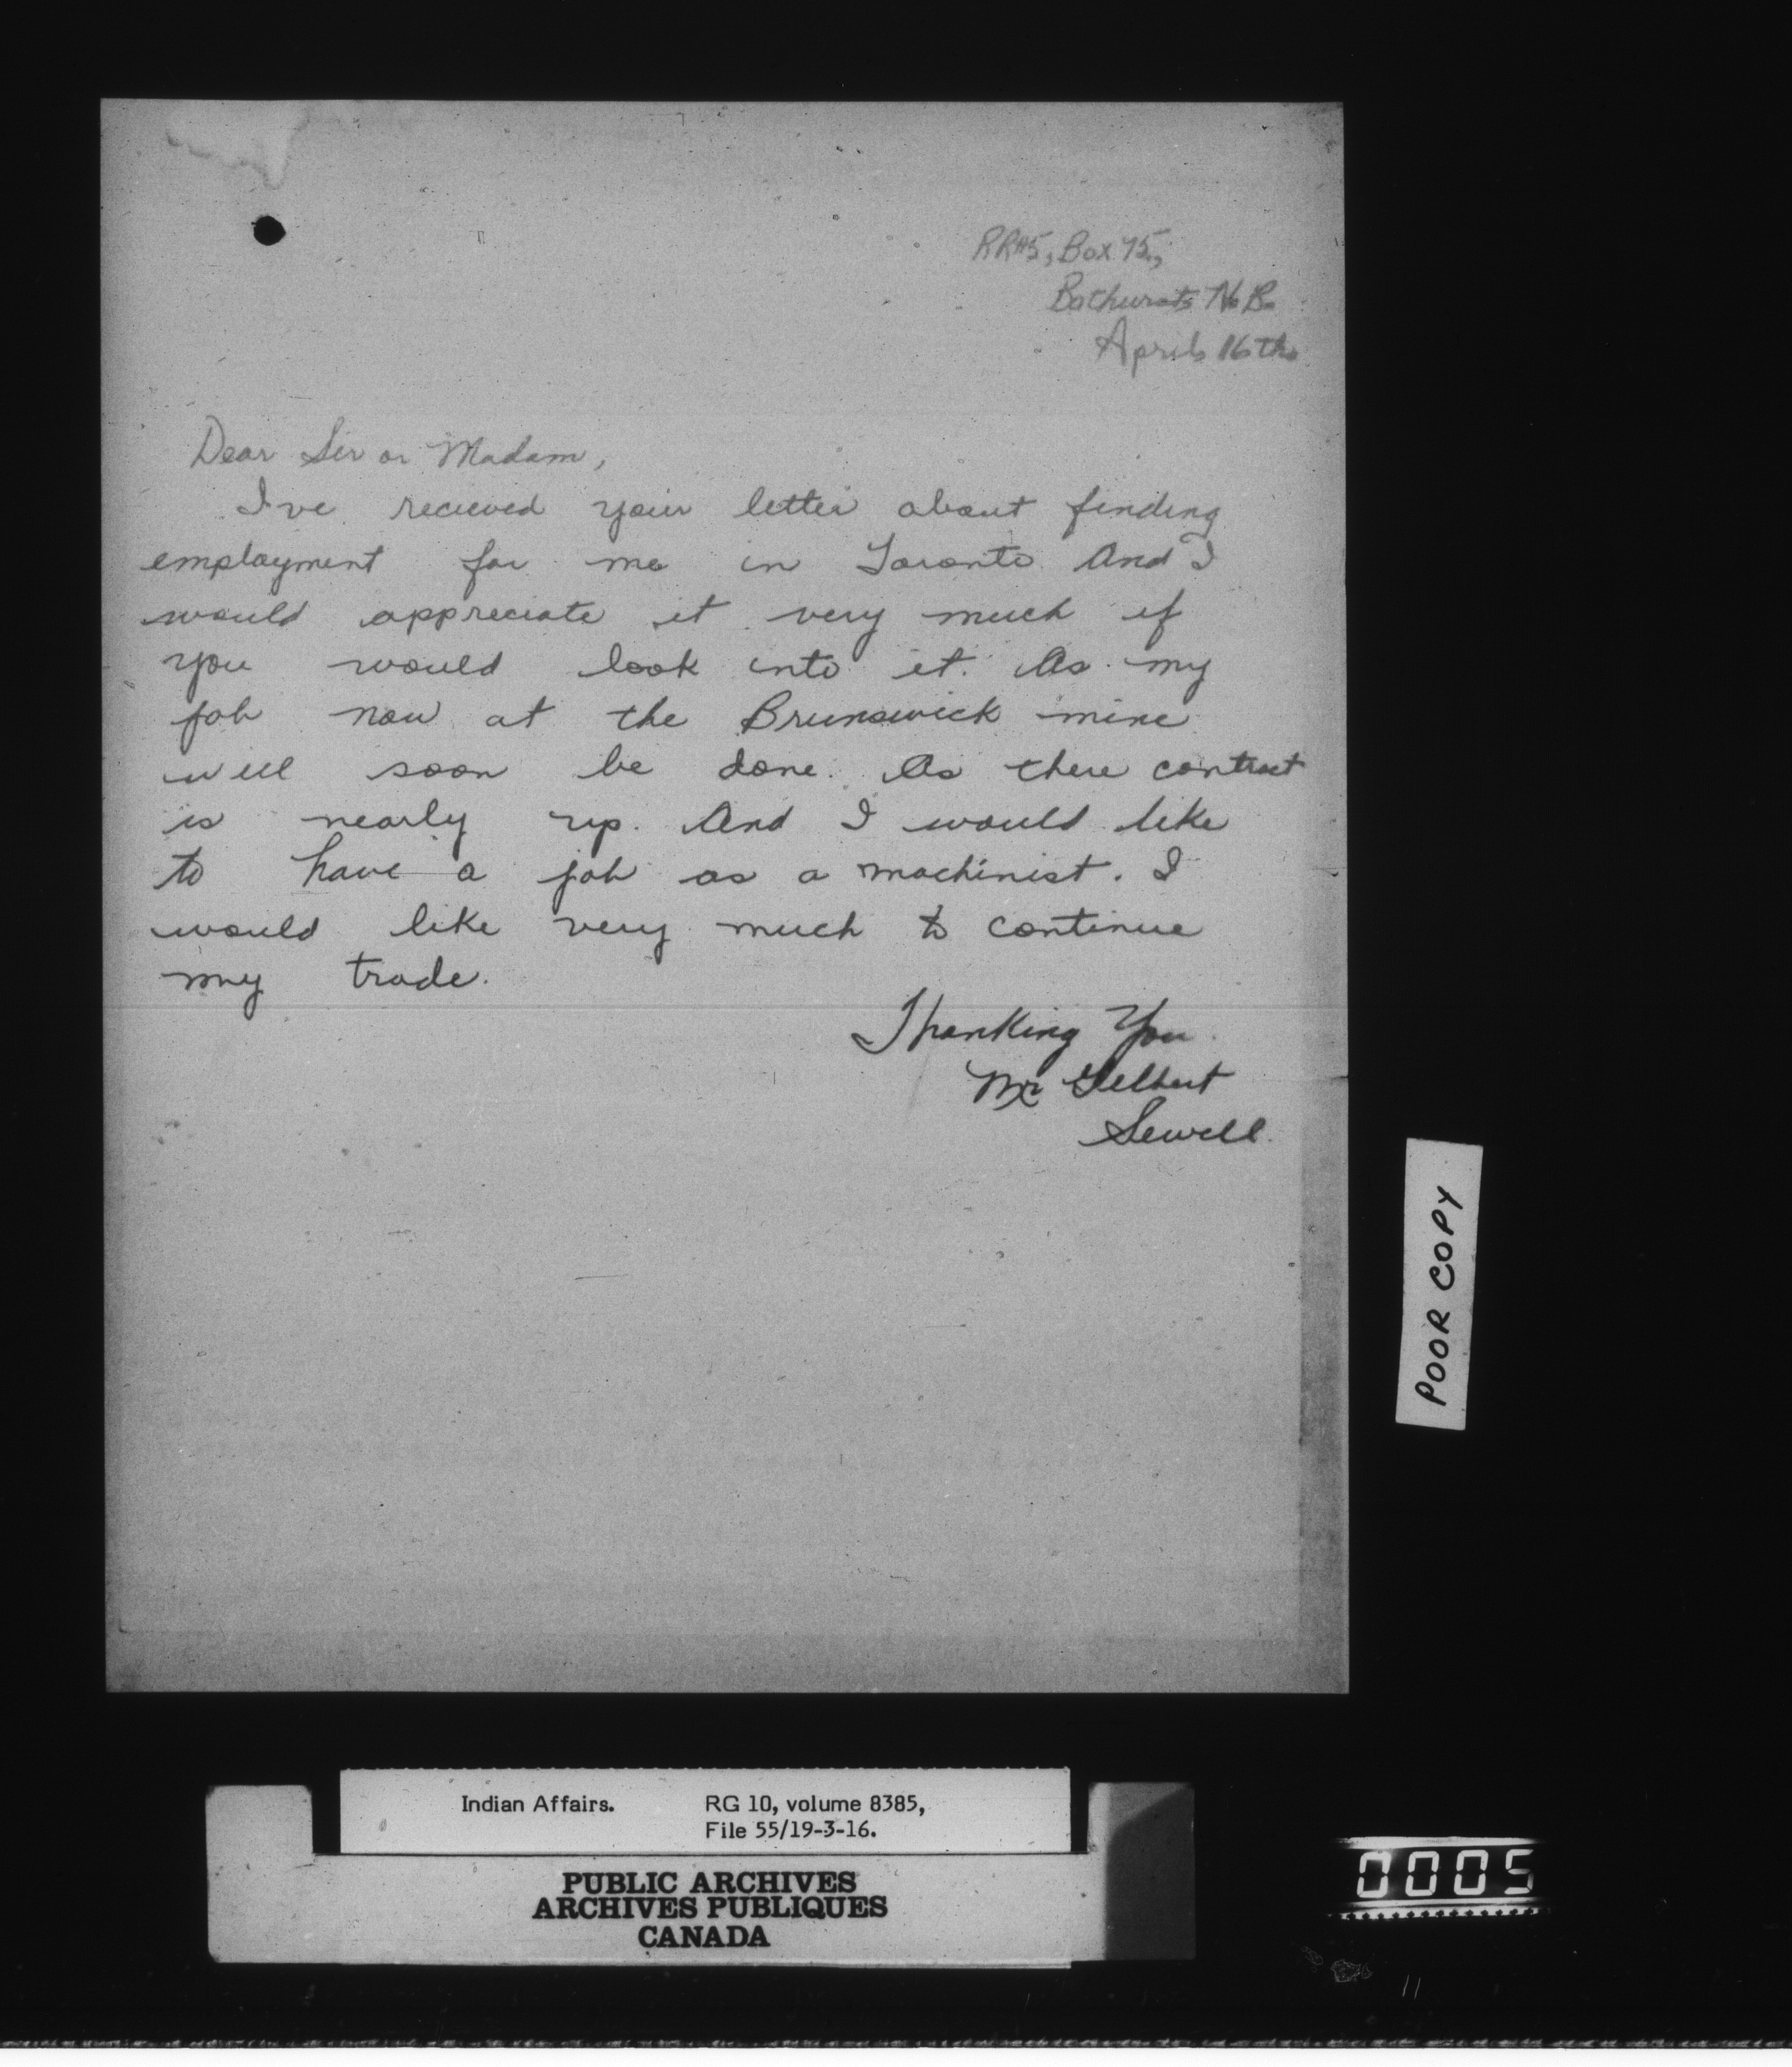 RR#5, Box 75,
Bathurst N.B.
April 16th.
Dear Sir or Madam,
I've recieved your letter about finding
employment for me in Toronto. And I
would appreciate it very much if
you would look into it. As my
job now at the Brunswick mine
will soon be done. As there contract
is nearly up. And I would like
to have a job as a machinist. I
would like very much to continue
my trade.
Thanking You
Mr Gilbert
Sewell.
POOR COPY
Indian Affairs. RG 10, volume 8385,
File 55/19-3-16.
PUBLIC ARCHIVES
ARCHIVES PUBLIQUES
CANADA
0005